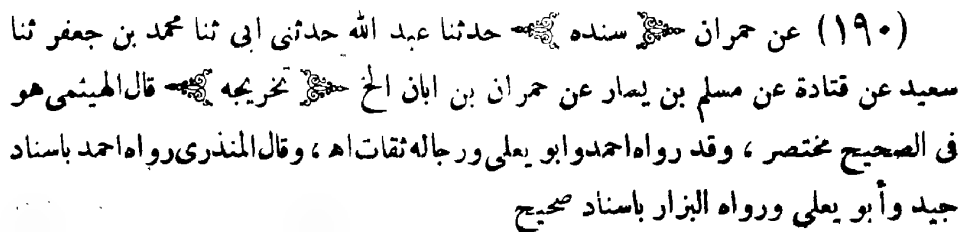 (١٩٠) عن حمران ﴿ سنده ﴾ حدثنا عبد الله حدثنى ابى ثنا محمد بن جعفر ثنا
سعيد عن قتادة عن مسلم بن يسار عن حمران بن ابان الخ ﴿ تخريجه ﴾ قال الهيثمى هو
فى الصحيح مختصر ، وقد رواه احمد وابو يعلى ورجاله ثقات اهـ ، وقال المنذرى رواه احمد باسناد
جيد وأبو يعلي ورواه البزار باسناد صحيح